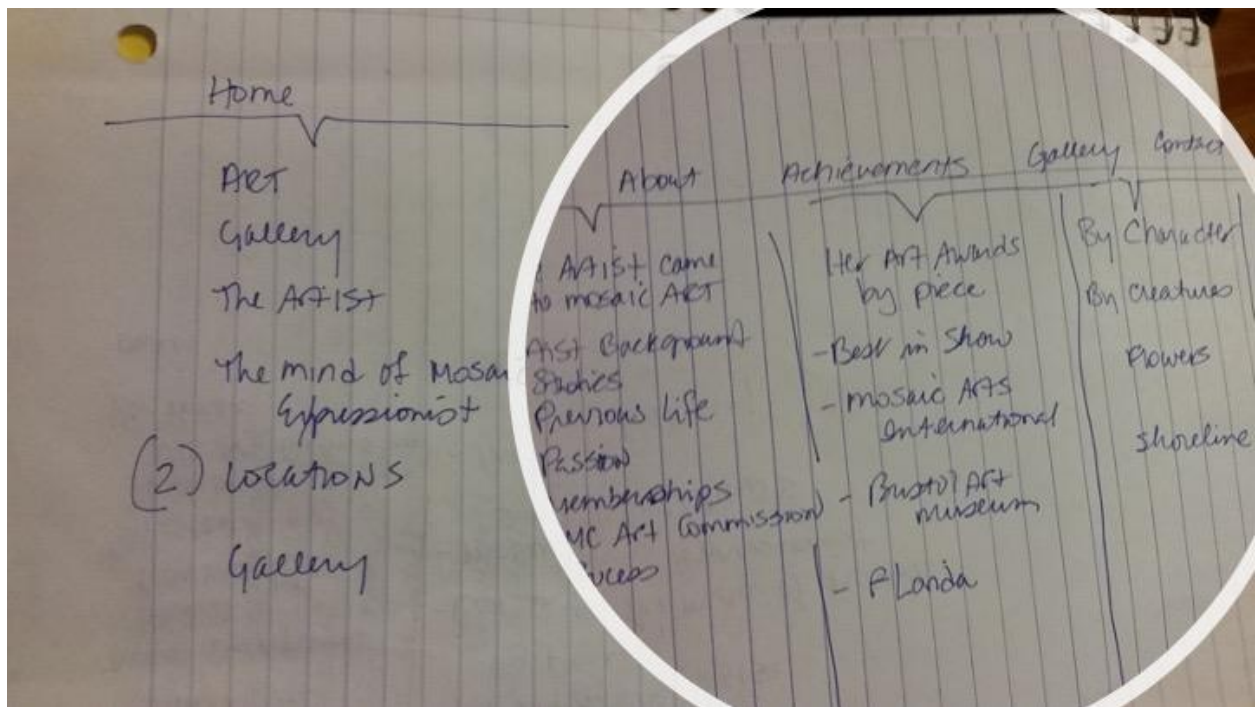 Home
ART
Gallery
The Artist
The mind of Mosaic
Expressionist
(2) Locations
Gallery
About
Artist came
to mosaic ART
Background
Studies
Previous Life
Passion
memberships
Art Commission
Achievements
Her Art Awards
by piece
- Best in Show
- Mosaic Arts
International
- Bristol Art
museum
- FLorida
Gallery
By Character
By Creatures
Flowers
Shoreline
Contact